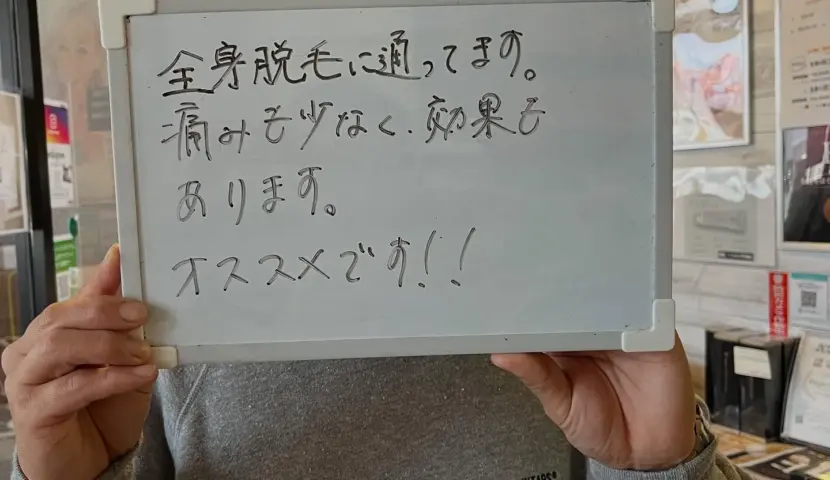 全身脱毛に通ってます。
痛みも少なく、効果も
あります。
オススメです!!